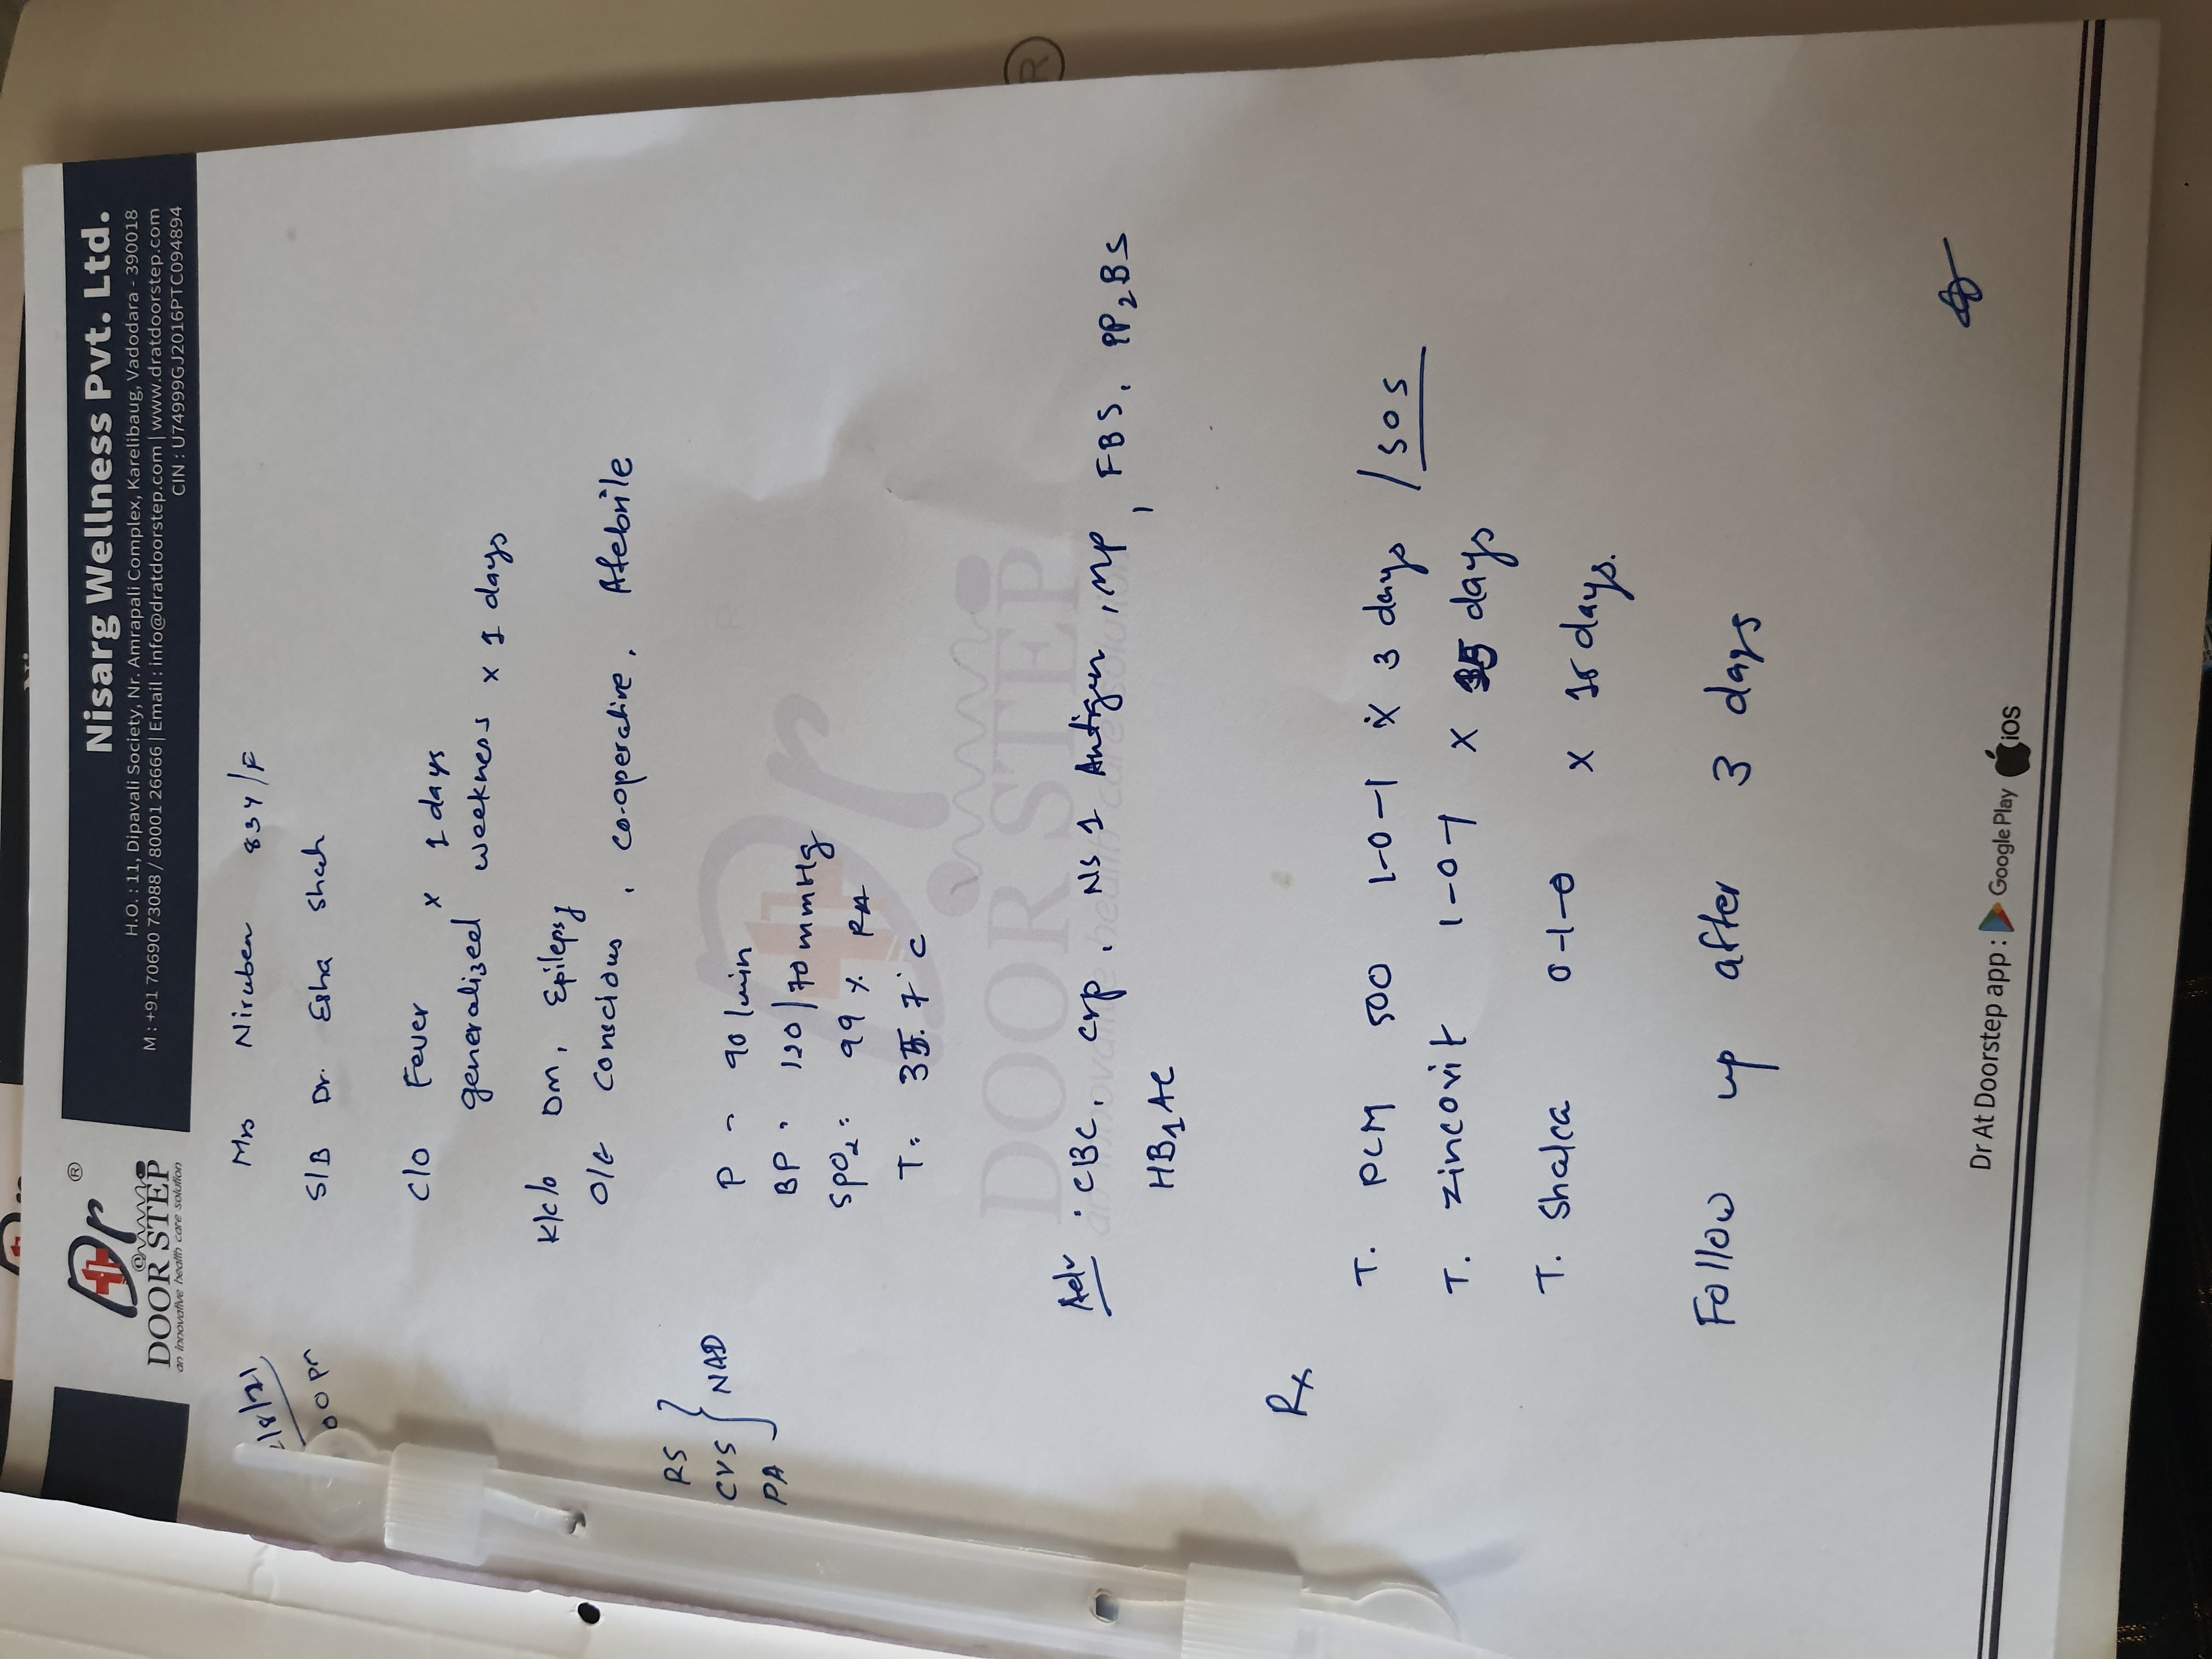 Dr ®
@
DOOR STEP
an innovative health care solution
Nisarg Wellness Pvt. Ltd.
H.O. : 11, Dipavali Society, Nr. Amrapali Complex, Karelibaug, Vadodara - 390018
M : +91 70690 73088 / 80001 26666 | Email : info@dratdoorstep.com | www.dratdoorstep.com
CIN : U74999GJ2016PTC094894
/8/21
00 pm
Mrs Niruben 83Y/F
S/B Dr. Esha Shah
C/O Fever x 1 days
generalized weekness x 1 days
K/C/O DM, Epilepsy
O/E conscious, co-operative, Afebrile
RS
CVS } NAD
PA
P - 90/min
BP : 120/70 mmHg
SpO2: 99 % RA
T: 35.7°c
Dr
DOOR STEP
an innovative health care solution
Adv . CBC, crp, NS 1 Antigen, MP, FBS, PP2BS
HB1AC
Rx
T. PCM 500 1-0-1 x 3 days /SOS
T. Zincovit 1-0-1 x 15 days
T. Shalca 0-1-0 x 15 days.
Follow up after 3 days
Dr At Doorstep app : Google Play iOS
®